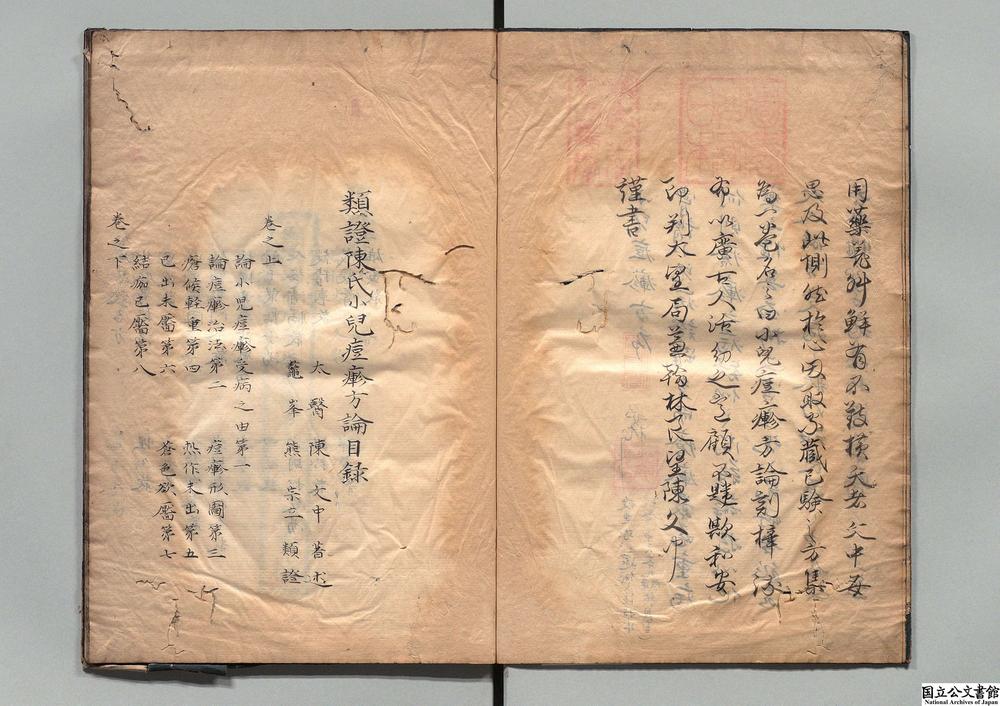 用藥覺舛鮮有不致橫夭者文中每
思及此惻然於心因取家藏已驗之方集
為一卷名之曰小兒痘瘮方論刻梓流
布以廣古人活幼之意顧不韙歟和安
郎判太醫局兼翰林良醫陳文中
謹書
類證陳氏小兒痘瘮方論目錄
太醫陳文中著述
鼇峯熊宗立類證
卷之上
論小兒痘瘮受病之由第一
論痘瘮治法第二 痘瘮形圖第三
瘡候輕重第四 热作未出第五
已出未靨第六 蒼色欲靨第七
結痂已靨第八
卷之下
国立公文書館
National Archives of Japan